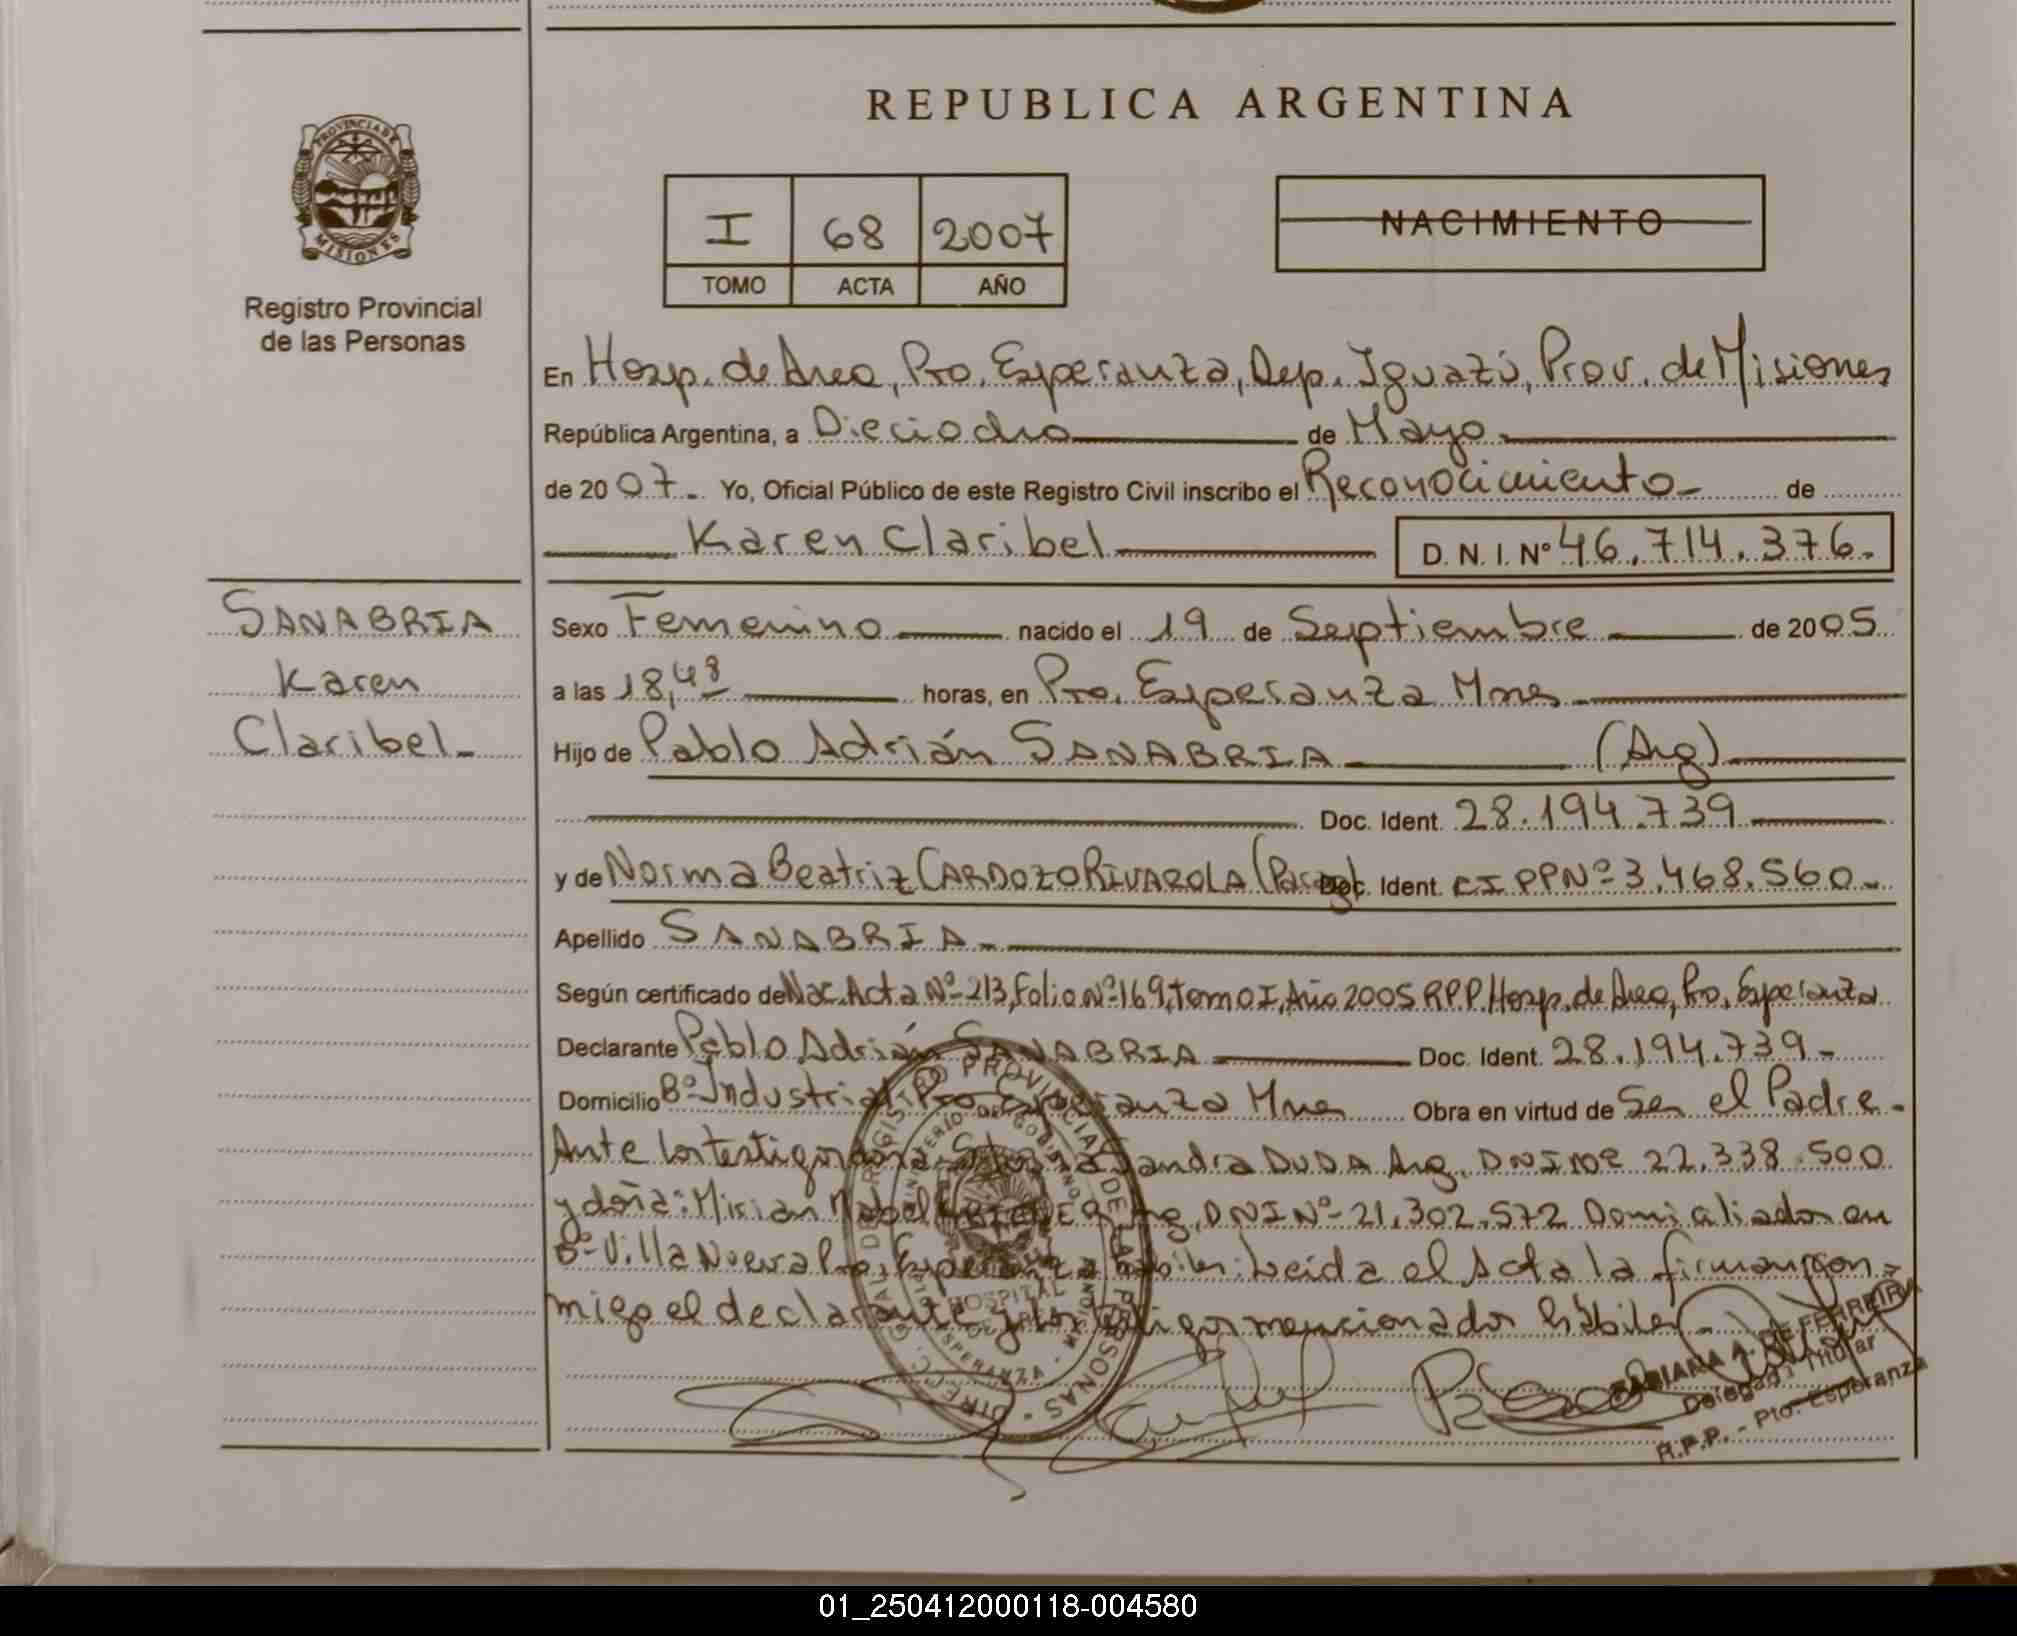 REPUBLICA ARGENTINA
PROVINCIA DE
MISIONES
Registro Provincial
de las Personas
I 68 2007
TOMO ACTA AÑO
NACIMIENTO
En Hosp. de Area, Pto. Esperanza, Dep. Iguazú, Prov. de Misiones
República Argentina, a Dieciocho de Mayo
de 2007. Yo, Oficial Público de este Registro Civil inscribo el Reconocimiento de
Karen Claribel D.N.I. Nº 46.714.376.
SANABRIA
Karen
Claribel
Sexo Femenino nacido el 19 de Septiembre de 2005
a las 18,48 horas, en Pto. Esperanza Mnes
Hijo de Pablo Adrián SANABRIA (Arg)
Doc. Ident. 28.194.739
y de Norma Beatriz CARDOZO RIVAROLA (Parag) Doc. Ident. CI PP Nº 3.468.560.
Apellido SANABRIA
Según certificado de Nac. Acta Nº 213, Folio Nº 169, Tomo I, Año 2005 R.P.P. Hosp. de Area, Pto. Esperanza
Declarante Pablo Adrián SANABRIA Doc. Ident. 28.194.739
Domicilio Bº Industrial Pto Esperanza Mnes Obra en virtud de Ser el Padre.
Ante los testigos doña Sandra DUDA Arg. DNI Nº 22.338.500
y doña: Mirian Mabel Arg. DNI Nº 21.302.572 Domiciliados en
Bº Villa Nueva Pto. Esperanza hábiles. Leida el Acta la firman con
migo el declarante y los testigos mencionados hábiles
REGISTRO PROVINCIAL DE LAS PERSONAS
MINISTERIO DE GOBIERNO
HOSPITAL
ESPERANZA
FABIANA A. DE FERREIRA
Delegada Titular
R.P.P. - Pto. Esperanza
01_250412000118-004580